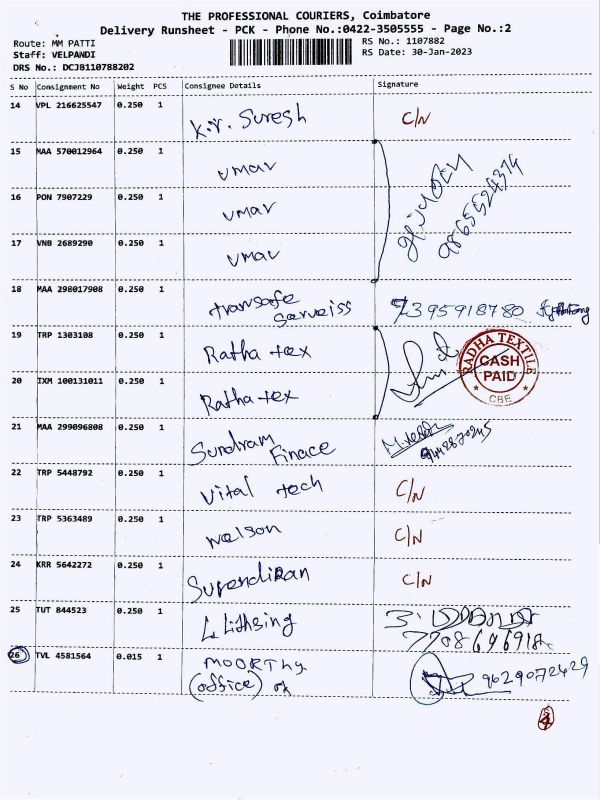 THE PROFESSIONAL COURIERS, Coimbatore
Delivery Runsheet - PCK - Phone No.:0422-3505555 - Page No.:2
Route: MM PATTI
Staff: VELPANDI
DRS No.: DCJB110788202
RS No.: 1107882
RS Date: 30-Jan-2023
S No Consignment No Weight PCS Consignee Details Signature
14 VPL 216625547 0.250 1 K.r. Suresh C/N
15 MAA 570012964 0.250 1 umar
16 PON 7907229 0.250 1 umar
9865524374
17 VNB 2689290 0.250 1 umar
18 MAA 298017908 0.250 1 transafe
Serveiss 7395918780
19 TRP 1303108 0.250 1 Ratha tex
RADHA TEXTILE
CASH
PAID
CBE
20 IXM 100131011 0.250 1 Ratha tex
21 MAA 299096808 0.250 1 Sundram
Finace
22 TRP 5448792 0.250 1 Vital tech C/N
23 TRP 5363489 0.250 1 nelson C/N
24 KRR 5642272 0.250 1 Surendiran C/N
25 TUT 844523 0.250 1
26 TVL 4581564 0.015 1 MOORTHy
(office) 9629072429